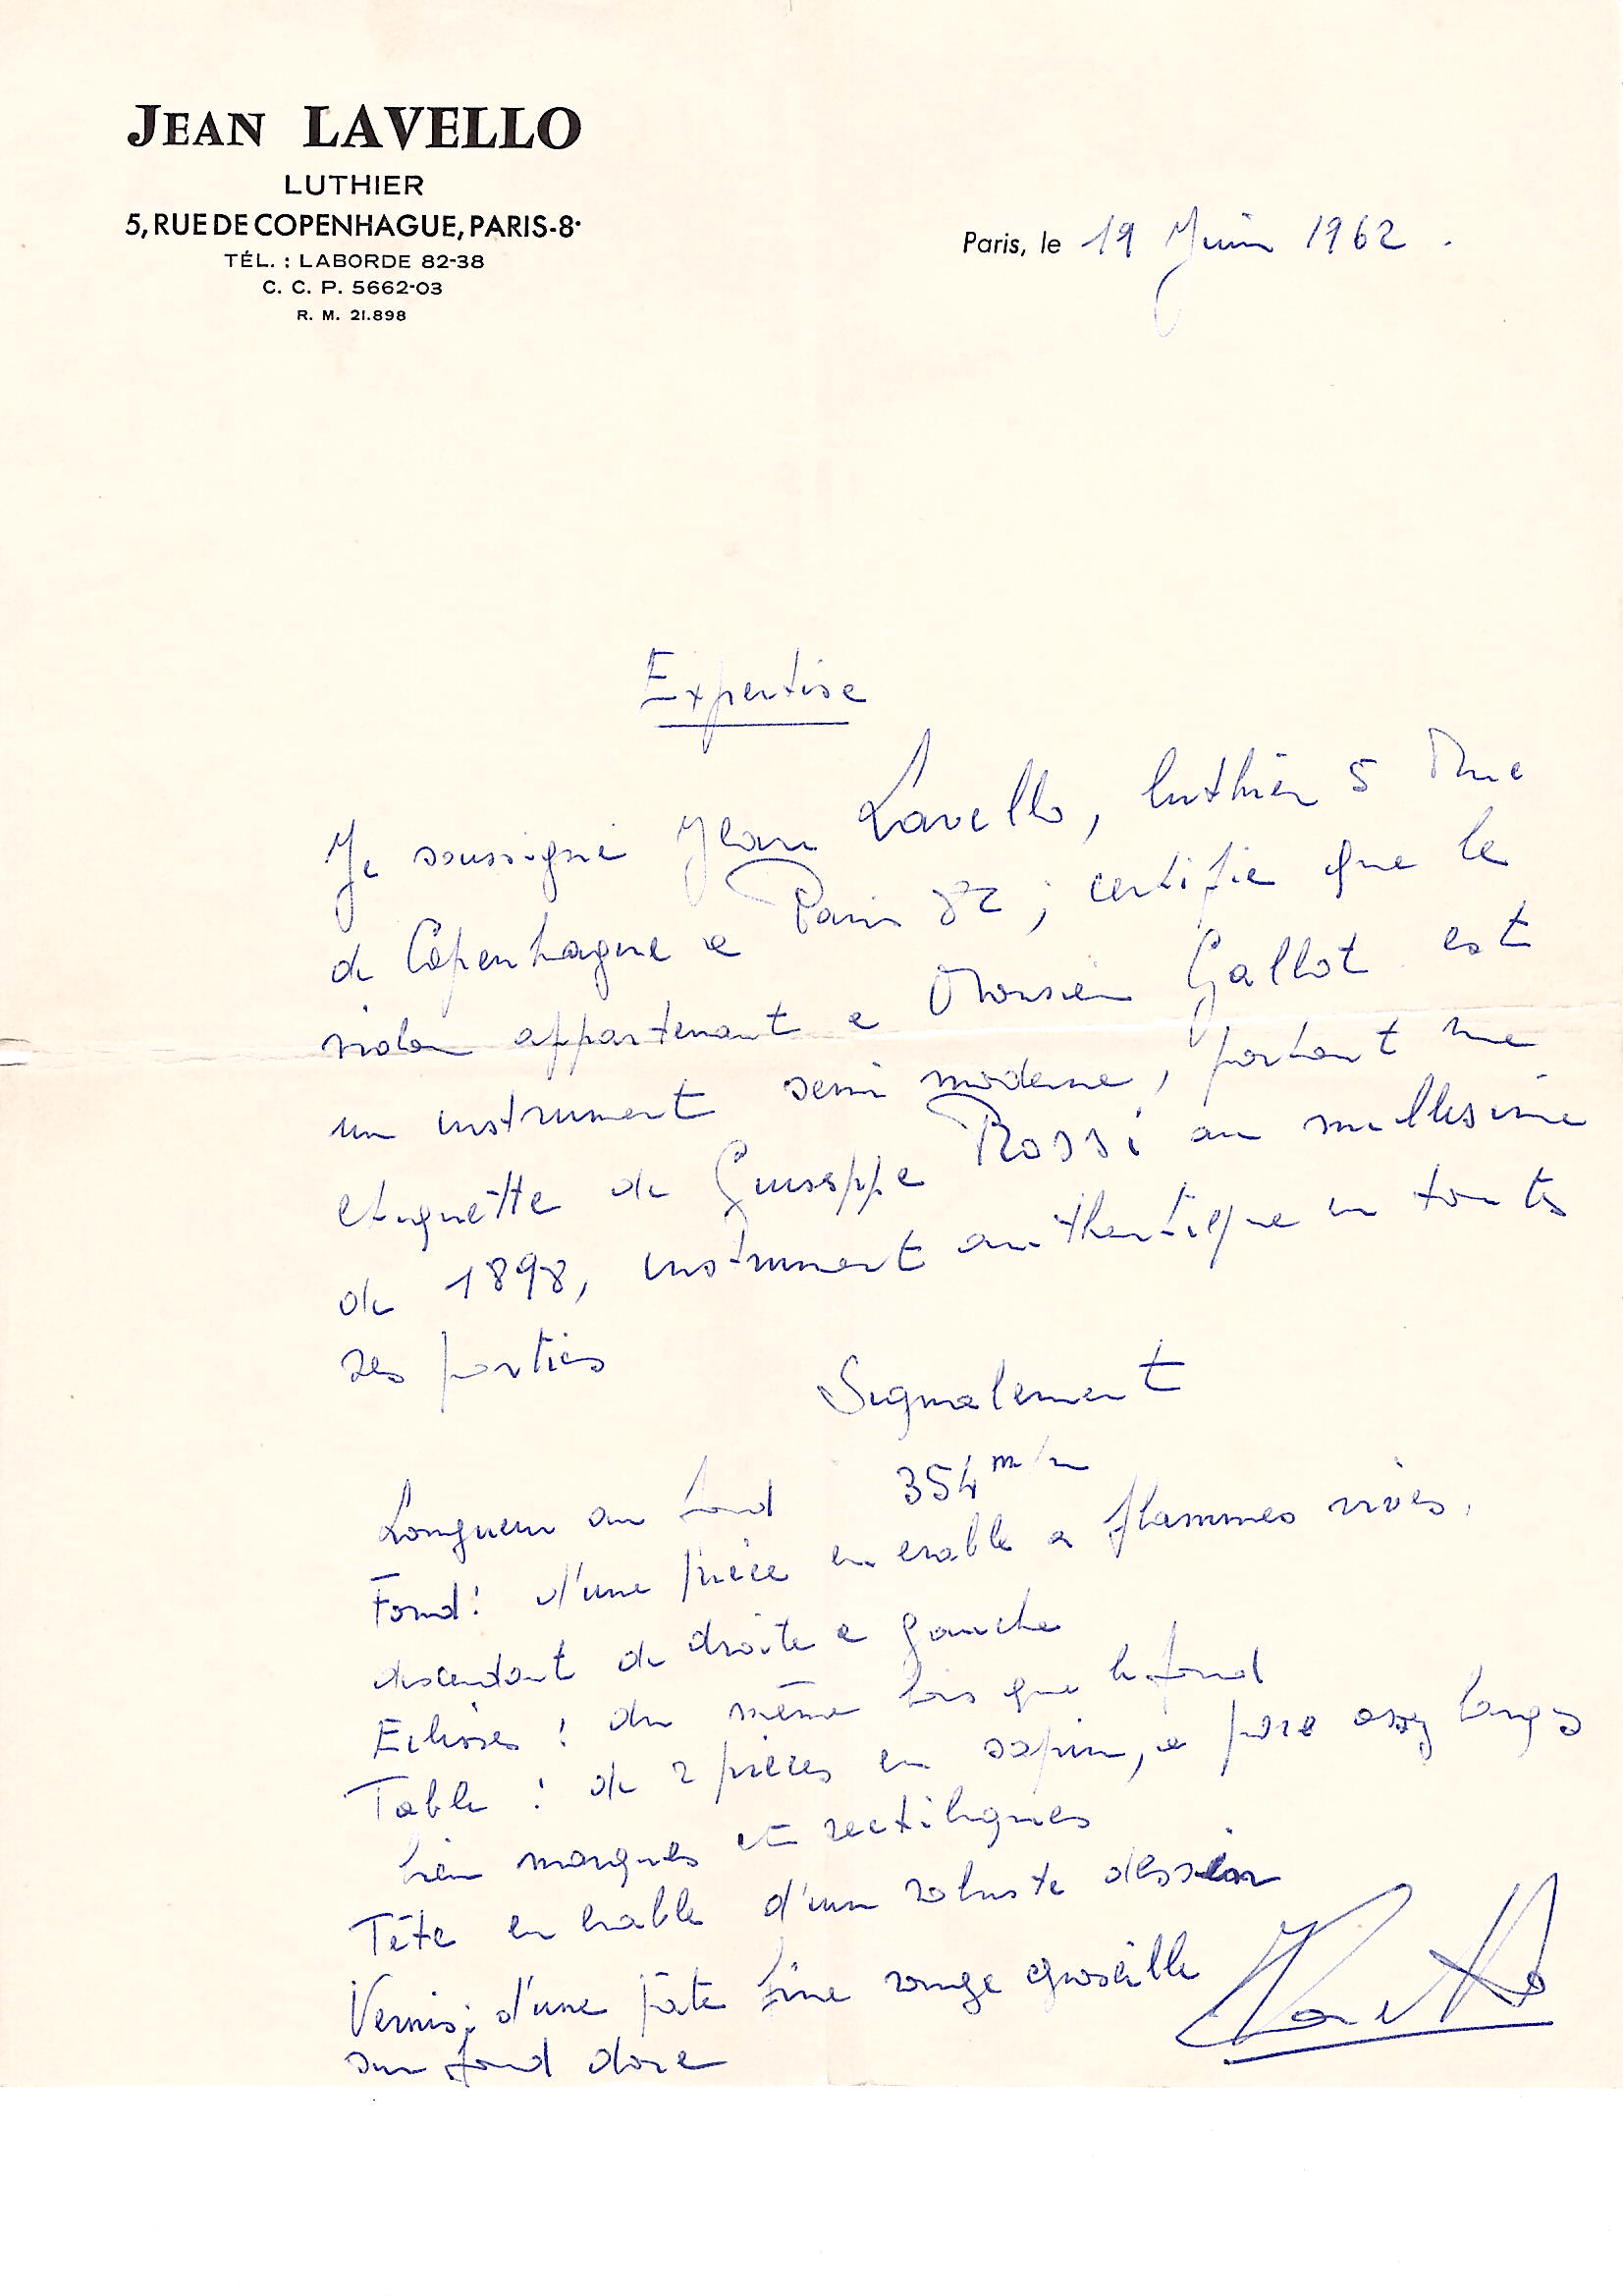 JEAN LAVELLO
LUTHIER
5, RUE DE COPENHAGUE, PARIS-8e
TÉL. : LABORDE 82-38
C. C. P. 5662-03
R. M. 21.898
Paris, le 19 Juin 1962.
Expertise
Je soussigné Jean Lavello, luthier 5 Rue
de Copenhague a Paris 8e ; certifie que le
violon appartenant a Monsieur Gallot est
un instrument semi moderne, portant une
etiquette de Guiseppe Rossi au millesime
de 1898, instrument authentique en toutes
ses parties
Signalement
Longueur au fond 354 m/m
Fond : d'une pièce en erable a flammes vives,
descendant de droite a gauche
Eclisses : du même bois que le fond
Table : de 2 pièces en sapin, a pore assez larges
bien marqués et rectilignes
Tête en erable d'un robuste dessin
Vernis : d'une pâte fine rouge groseille
sur fond dore
Lavello